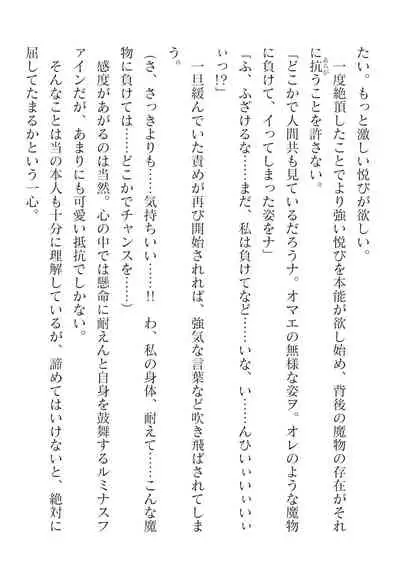 たい。もっと激しい悦びが欲しい。
　一度絶頂したことでより強い悦びを本能が欲し始め、背後の魔物の存在がそれ
に抗うことを許さない。
「どこかで人間共も見ているだろうナ。オマエの無様な姿ヲ。オレのような魔物
に負けて、イってしまった姿をナ」
「ふ、ふざけるな……まだ、私は負けてなど……いな、い……んひぃいぃいぃぃ
ぃっ!?」
　一旦緩んでいた責めが再び開始されれば、強気な言葉など吹き飛ばされてしま
う。
（さ、さっきよりも……気持ちいい……!!　わ、私の身体、耐えて……こんな魔
物に負けては……どこかでチャンスを……）
　感度があがるのは当然。心の中では懸命に耐えんと自身を鼓舞するルミナスフ
ァインだが、あまりにも可愛い抵抗でしかない。
　そんなことは当の本人も十分に理解しているが、諦めてはいけないと、絶対に
屈してたまるかという一心。